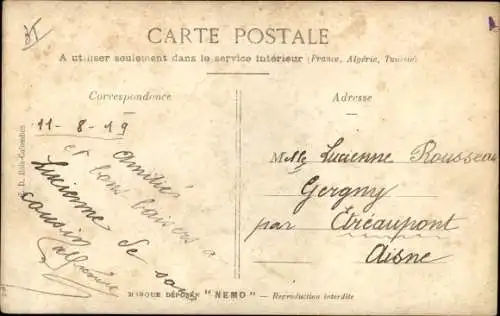 CARTE POSTALE
A utiliser seulement dans le service intérieur (France, Algérie, Tunisie)
Correspondance
Adresse
11-8-19
Amitiés
et bons baisers à
Lucienne de son
cousin
Melle Lucienne Rousseau
Gergny
par Etréaupont
Aisne
E. D. Bois-Colombes
MARQUE DÉPOSÉE "NEMO" — Reproduction interdite